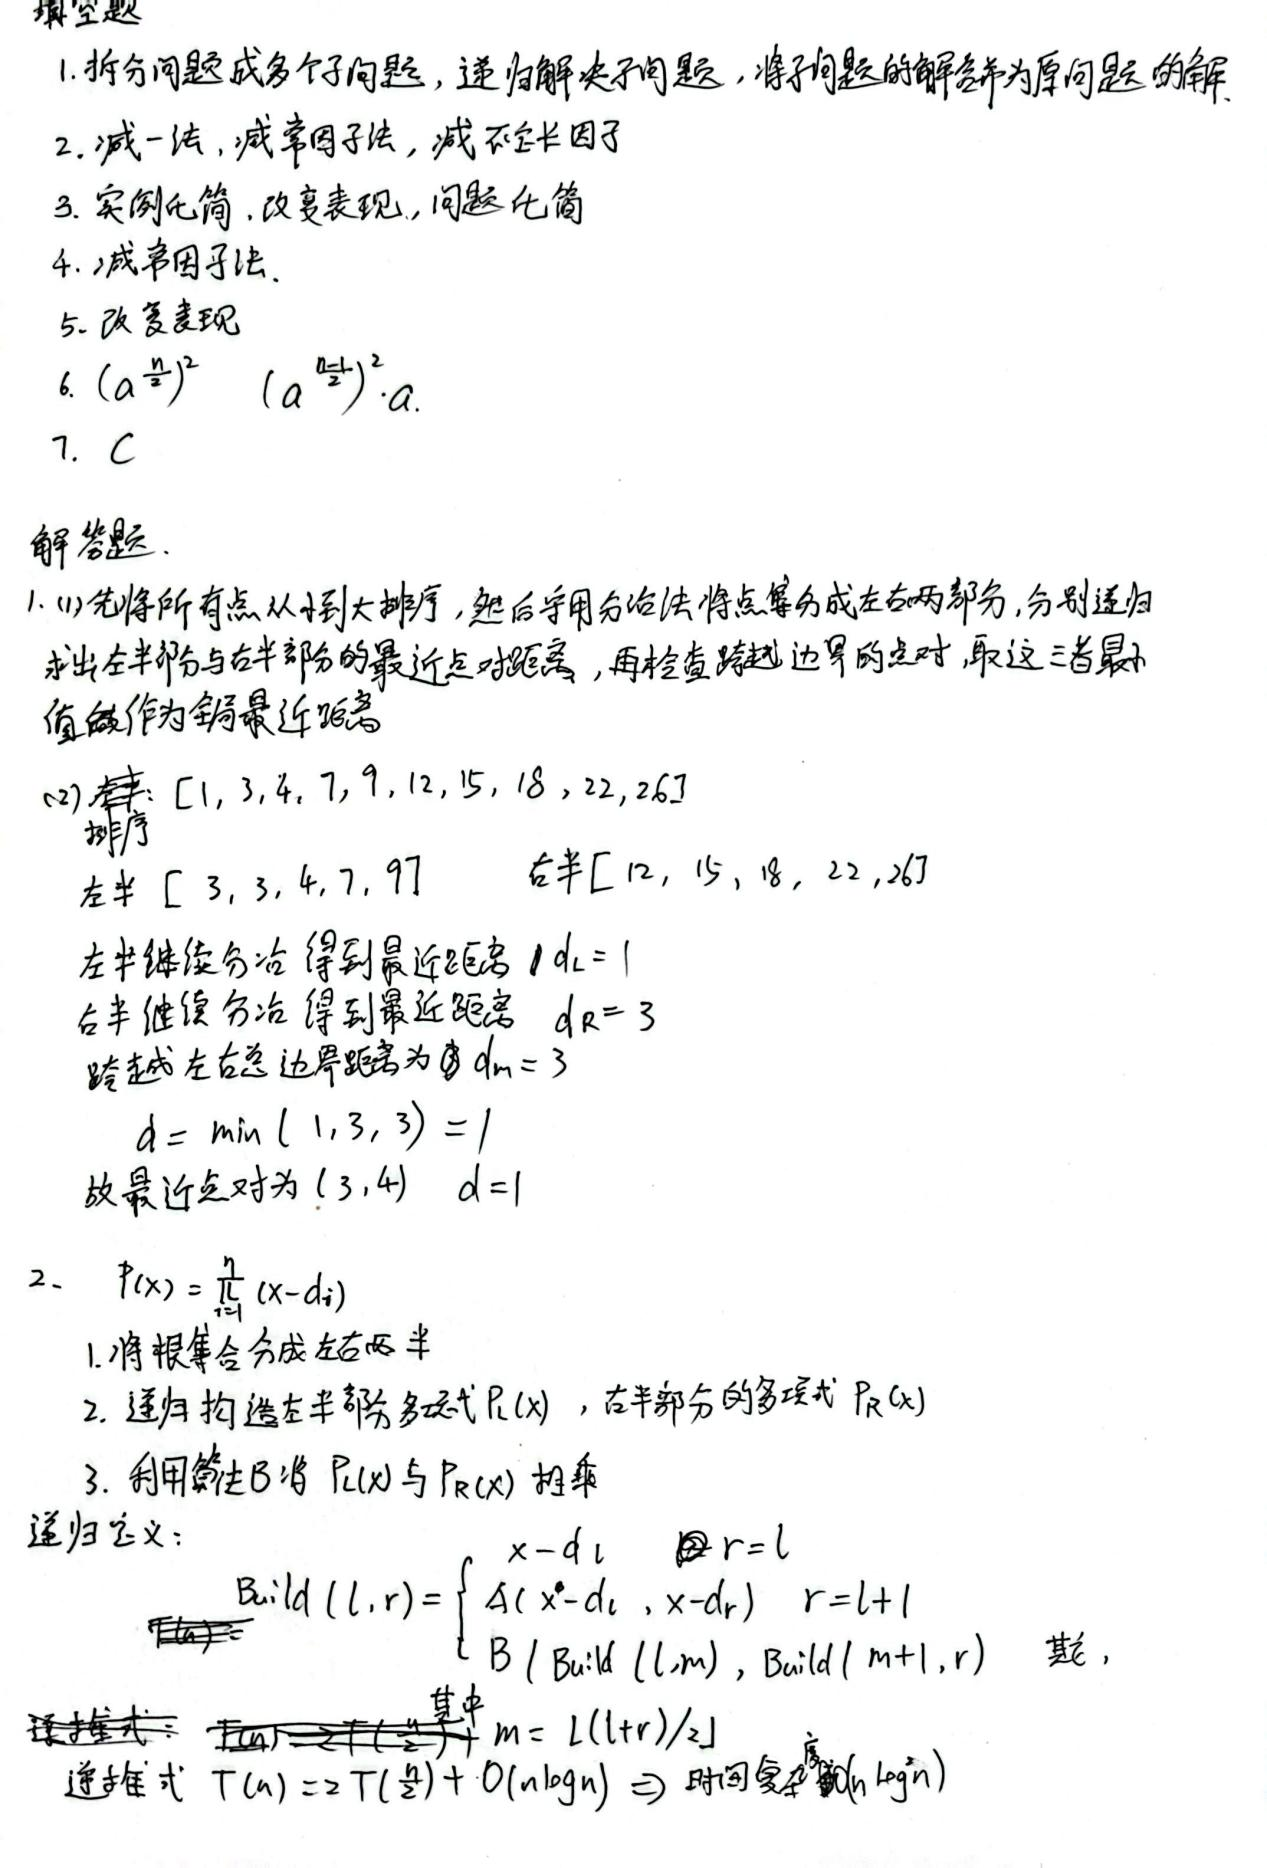 填空题
1. 拆分问题成多个子问题，递归解决子问题，将子问题的解合并为原问题的解.
2. 减一法，减常因子法，减不定长因子
3. 实例化简，改变表现，问题化简
4. 减常因子法.
5. 改变表现
6. (a^{n/2})^2 (a^{(n-1)/2})^2·a.
7. C
解答题.
1. (1) 先将所有点从小到大排序，然后采用分治法将点集分成左右两部分，分别递归
求出左半部分与右半部分的最近点对距离，再检查跨越边界的点对，取这三者最小
值作为全局最近距离
(2) 排序: [1, 3, 4, 7, 9, 12, 15, 18, 22, 26]
左半 [3, 3, 4, 7, 9] 右半 [12, 15, 18, 22, 26]
左半继续分治 得到最近距离 d_L = 1
右半继续分治 得到最近距离 d_R = 3
跨越左右边界距离为 d_m = 3
d = min(1, 3, 3) = 1
故最近点对为 (3, 4) d = 1
2. P(x) = ∏_{i=1}^{n} (x-d_i)
1. 将根集合分成左右两半
2. 递归构造左半部分多项式 P_L(x)，右半部分的多项式 P_R(x)
3. 利用算法B将 P_L(x) 与 P_R(x) 相乘
递归定义：
x-d_l r=l
Build(l,r) = { A(x-d_l, x-d_r) r=l+1
B(Build(l,m), Build(m+1,r)
其中 m = ⌊(l+r)/2⌋
递推式 T(n) = 2T(n/2) + O(nlogn) ⇒ 时间复杂度 O(n log²n)